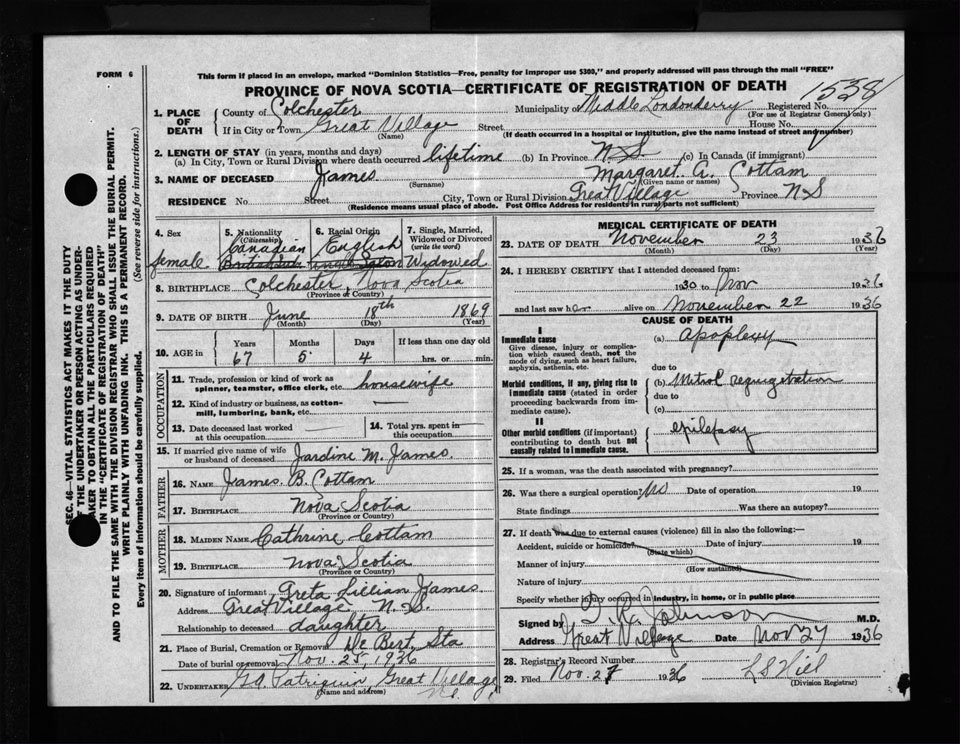 FORM 6
This form if placed in an envelope, marked "Dominion Statistics—Free, penalty for improper use $300," and properly addressed will pass through the mail "FREE"
PROVINCE OF NOVA SCOTIA—CERTIFICATE OF REGISTRATION OF DEATH
1538
1. PLACE OF DEATH
County of Colchester Municipality of Middle Londonderry Registered No.
(For use of Registrar General only)
If in City or Town Great Village Street House No.
(Name) (If death occurred in a hospital or institution, give the name instead of street and number)
2. LENGTH OF STAY (in years, months and days)
(a) In City, Town or Rural Division where death occurred lifetime (b) In Province N S (c) In Canada (if immigrant)
3. NAME OF DECEASED James Margaret A. Cottam
(Surname) (Given name or names)
RESIDENCE No Street City, Town or Rural Division Great Village Province N S
(Residence means usual place of abode. Post Office Address for residents in rural parts not sufficient)
4. Sex female
5. Nationality (Citizenship) Canadian
6. Racial Origin English
7. Single, Married, Widowed or Divorced (write the word) Widowed
8. BIRTHPLACE Colchester, Nova Scotia
(Province or Country)
9. DATE OF BIRTH June 18th 1869
(Month) (Day) (Year)
10. AGE in Years Months Days If less than one day old
67 5 4 hrs. or min.
OCCUPATION
11. Trade, profession or kind of work as spinner, teamster, office clerk, etc. housewife
12. Kind of industry or business, as cotton-mill, lumbering, bank, etc. —
13. Date deceased last worked at this occupation —
14. Total yrs. spent in this occupation —
15. If married give name of wife or husband of deceased Jardine M. James.
FATHER
16. NAME James B. Cottam
17. BIRTHPLACE Nova Scotia
(Province or Country)
MOTHER
18. MAIDEN NAME Cathrine Cottam
19. BIRTHPLACE Nova Scotia
(Province or Country)
20. Signature of informant Greta Lillian James
Address Great Village N. S.
Relationship to deceased daughter
21. Place of Burial, Cremation or Removal De Bert, Sta
Date of burial or removal Nov. 25, 1936
22. UNDERTAKER G A Patriquin, Great Village N.S.
(Name and address)
MEDICAL CERTIFICATE OF DEATH
23. DATE OF DEATH November 23 1936
(Month) (Day) (Year)
24. I HEREBY CERTIFY that I attended deceased from:
1930 to Nov 1936
and last saw her alive on November 22 1936
CAUSE OF DEATH
I
Immediate cause
Give disease, injury or complication which caused death, not the mode of dying, such as heart failure, asphyxia, asthenia, etc.
(a) apoplexy
due to
Morbid conditions, if any, giving rise to immediate cause (stated in order proceeding backwards from immediate cause).
(b) Mitral regurgitation
due to
(c)
II
Other morbid conditions (if important) contributing to death but not causally related to immediate cause.
epilepsy
25. If a woman, was the death associated with pregnancy?
26. Was there a surgical operation? No Date of operation 19
State findings Was there an autopsy?
27. If death was due to external causes (violence) fill in also the following:—
Accident, suicide or homicide Date of injury 19
(State which)
Manner of injury
(How sustained)
Nature of injury
Specify whether injury occurred in industry, in home, or in public place
Signed by T. R. Johnson M.D.
Address Great Village Date Nov 24 1936
28. Registrar's Record Number
29. Filed Nov. 27 1936 L S Hill
(Division Registrar)
SEC. 46—VITAL STATISTICS ACT MAKES IT THE DUTY
OF THE UNDERTAKER OR PERSON ACTING AS UNDER-
TAKER TO OBTAIN ALL THE PARTICULARS REQUIRED
IN THE "CERTIFICATE OF REGISTRATION OF DEATH"
AND TO FILE THE SAME WITH THE DIVISION REGISTRAR WHO SHALL ISSUE THE BURIAL PERMIT.
WRITE PLAINLY WITH UNFADING INK. THIS IS A PERMANENT RECORD.
Every item of information should be carefully supplied. (See reverse side for instructions.)